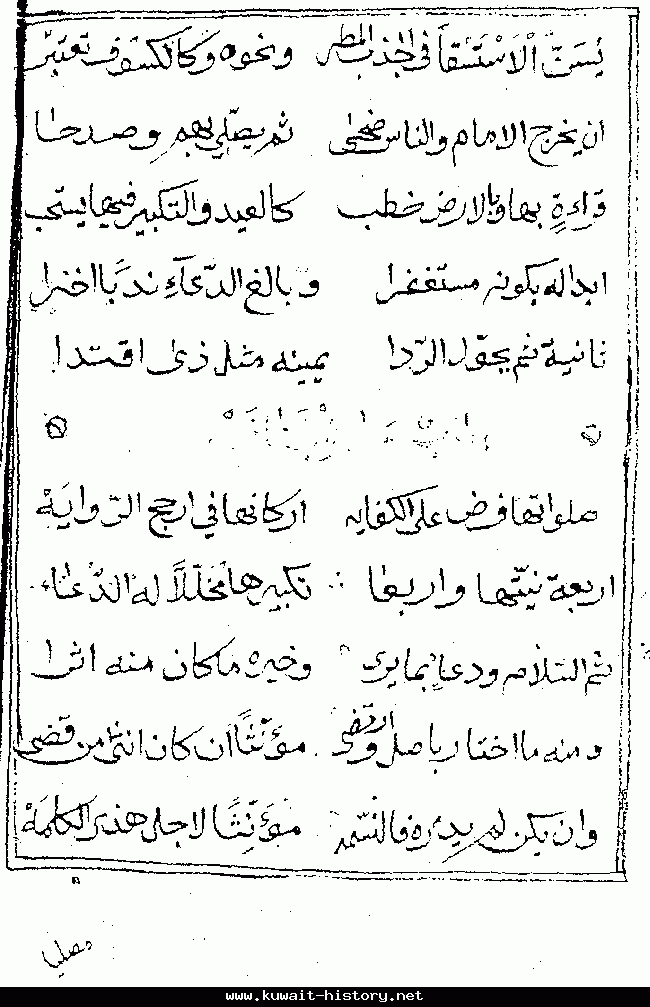 يُسَنّ الاسْتسْقا في الجذب المطر ونحوه وكالكسُوف تعتبر
ان يخرج الامام والناس ضحى ثم يصلي بهم وصدحا
قراءةٍ بها وبالارض خطب كالعيد والتكبير فيها يستحب
ابداله بكونه مستغفرا وبالغ الدّعآء ندبًا اخرا
ثانية ثم يحوّل الرّدا يمينه مثل ذى اقتدا
صلواتها فرض على الكفايه اركانها في ارجح الرّوايَهْ
اربعة نيّتها واربعا تكبيرها مخلّلاً له الدّعاء
ثم السّلام ودعا بما يرى وخيره ما كان منه اثرا
ومنه ما اختار باصل وارتضى مؤنّثًا ان كان انثى من قضى
وان يكن لم يدره فالنّسمه مؤنّثًا لاجل هذى الكلمهْ
مصليا
www.kuwait-history.net